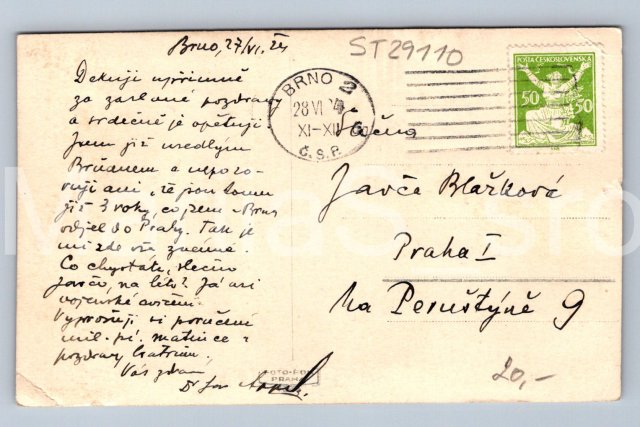 Brno, 27/VI. 24
ST29110
Děkuji upřímně
za zaslané pozdravy
a srdečně je opětuji
Jsem již usedlým
Brňanem a nepozo-
ruji ani, že jsou tomu
již 3 roky, co jsem z Brna
odjel do Prahy. Tak je
mi zde vše známé.
Co chystáte, slečno
Javčo, na léto? Já asi
vojenské cvičení.
Vyprošuji si poručení
mil. pí. matince
pozdravy
Váš zdrav
Dr
BRNO 2
28 VI
XI-XII
Č.S.P.
POŠTA ČESKOSLOVENSKÁ
50 50
Slečna
Javča Blažková
Praha I
Na Perštýně 9
FOTO-FON
PRAHA
20,-